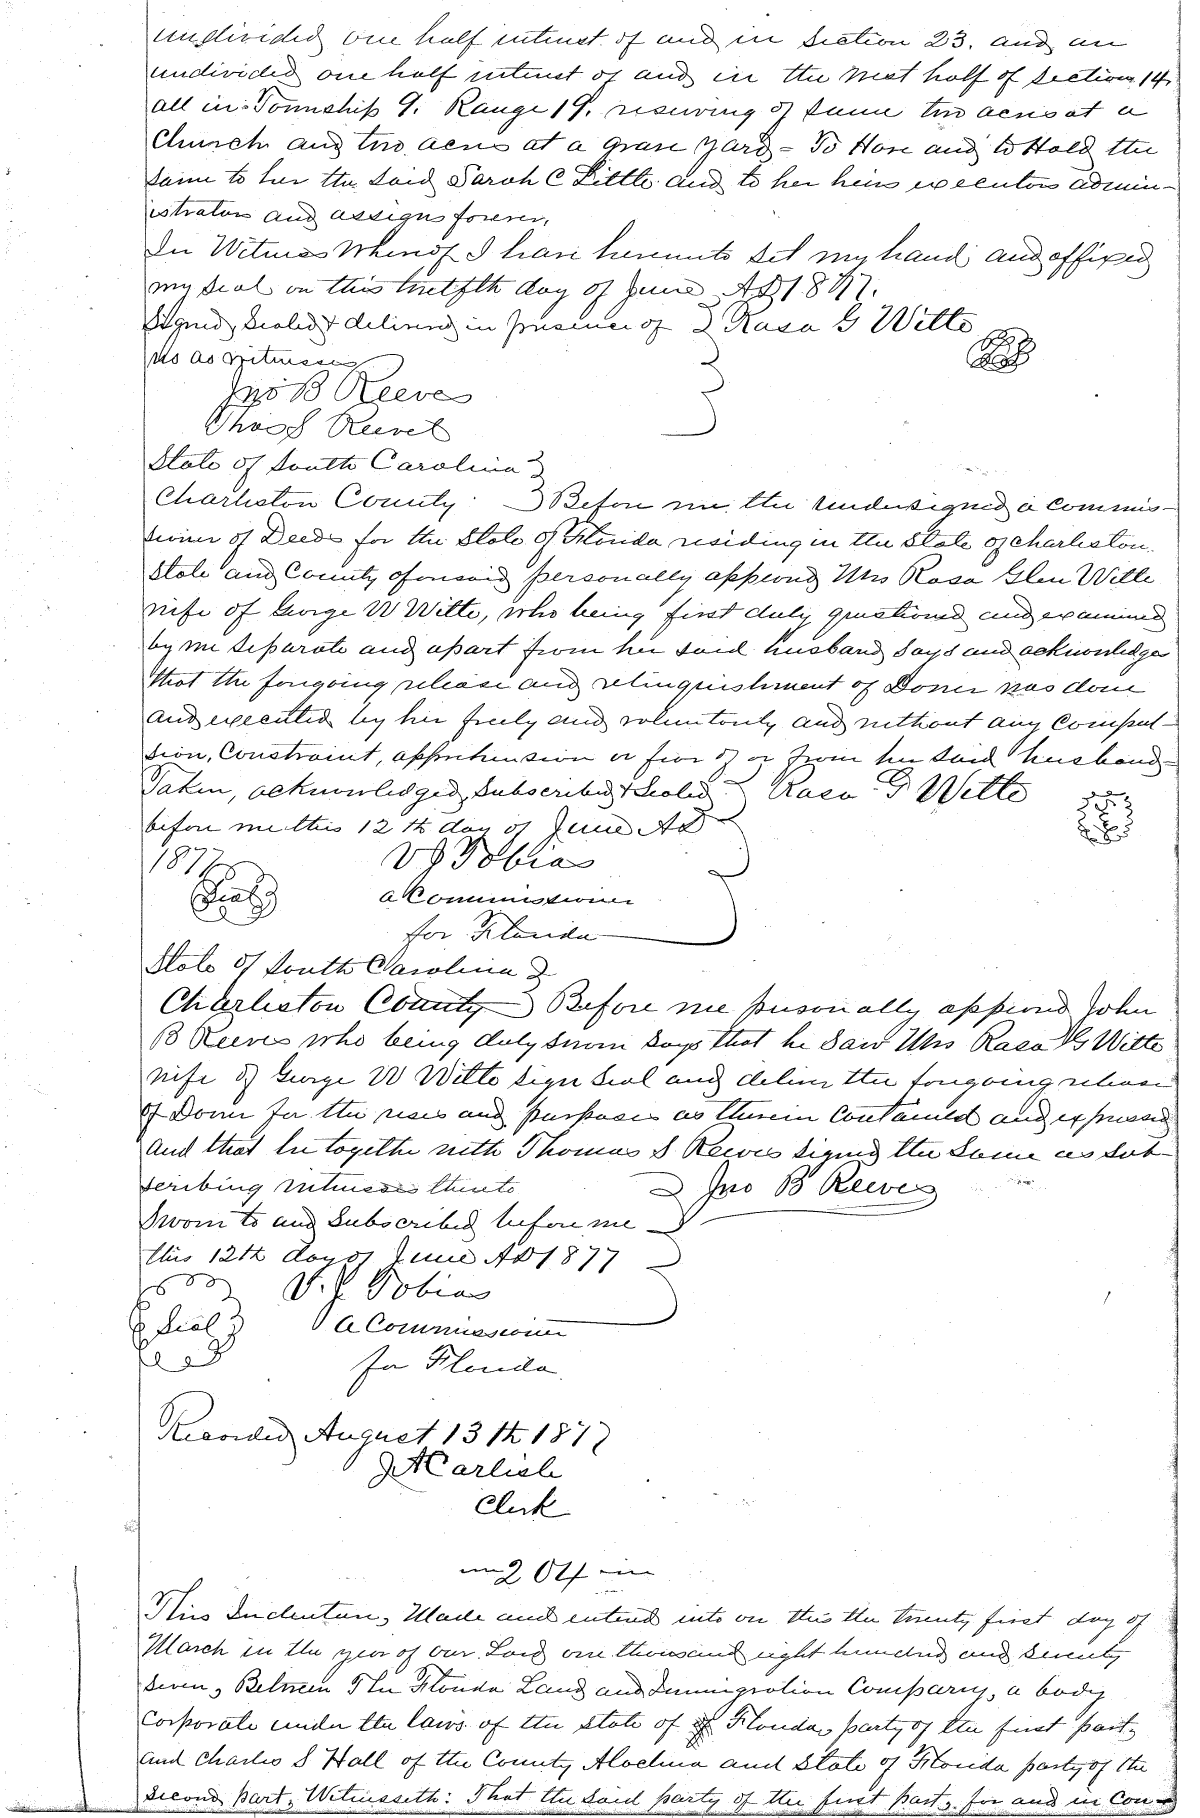 undivided one half interest of and in Section 23. and an
undivided one half interest of and in the West half of Section 14.
all in Township 9. Range 19. reserving of same two acres at a
Church and two acres at a grave yard = To Have and to Hold the
same to her the said Sarah C Little and to her heirs executors admin-
istrators and assigns forever,
In Witness Whereof I have hereunto set my hand and affixed
my seal on this twelfth day of June AD 1877.
Signed, Sealed & delivered in presence of } Rosa G Witte
us as witnesses
Jno B Reeves
Thos S Reeves
State of South Carolina }
Charleston County } Before me the undersigned a commis-
sioner of Deeds for the State of Florida residing in the State of Charleston
State and County aforesaid personally appeared Mrs Rosa Glen Witte
wife of George W Witte, who being first duly questioned and examined
by me separate and apart from her said husband says and acknowledges
that the foregoing release and relinquishment of Dower was done
and executed by her freely and voluntarily and without any compul-
sion, constraint, apprehension or fear of or from her said husband-
Taken, acknowledged, subscribed & Sealed } Rosa G Witte
before me this 12th day of June AD
1877 V J Tobias
Seal a Commissioner
for Florida
State of South Carolina }
Charleston County } Before me personally appeared John
B Reeves who being duly sworn says that he saw Mrs Rosa G Witte
wife of George W Witte sign seal and deliver the foregoing release
of Dower for the uses and purposes as therein contained and expressed
and that he together with Thomas S Reeves signed the same as sub-
scribing witnesses thereto } Jno B Reeves
Sworn to and Subscribed before me
this 12th day of June AD 1877
V. J. Tobias
Seal a Commissioner
for Florida
Recorded August 13th 1877
J A Carlisle
Clerk
204
This Indenture, Made and entered into on this the twenty first day of
March in the year of our Lord one thousand eight hundred and seventy
seven, Between The Florida Land and Immigration Company, a body
corporate under the laws of the State of of Florida, party of the first part,
and Charles S Hall of the County Alachua and State of Florida party of the
second part, Witnesseth: That the said party of the first part, for and in con-